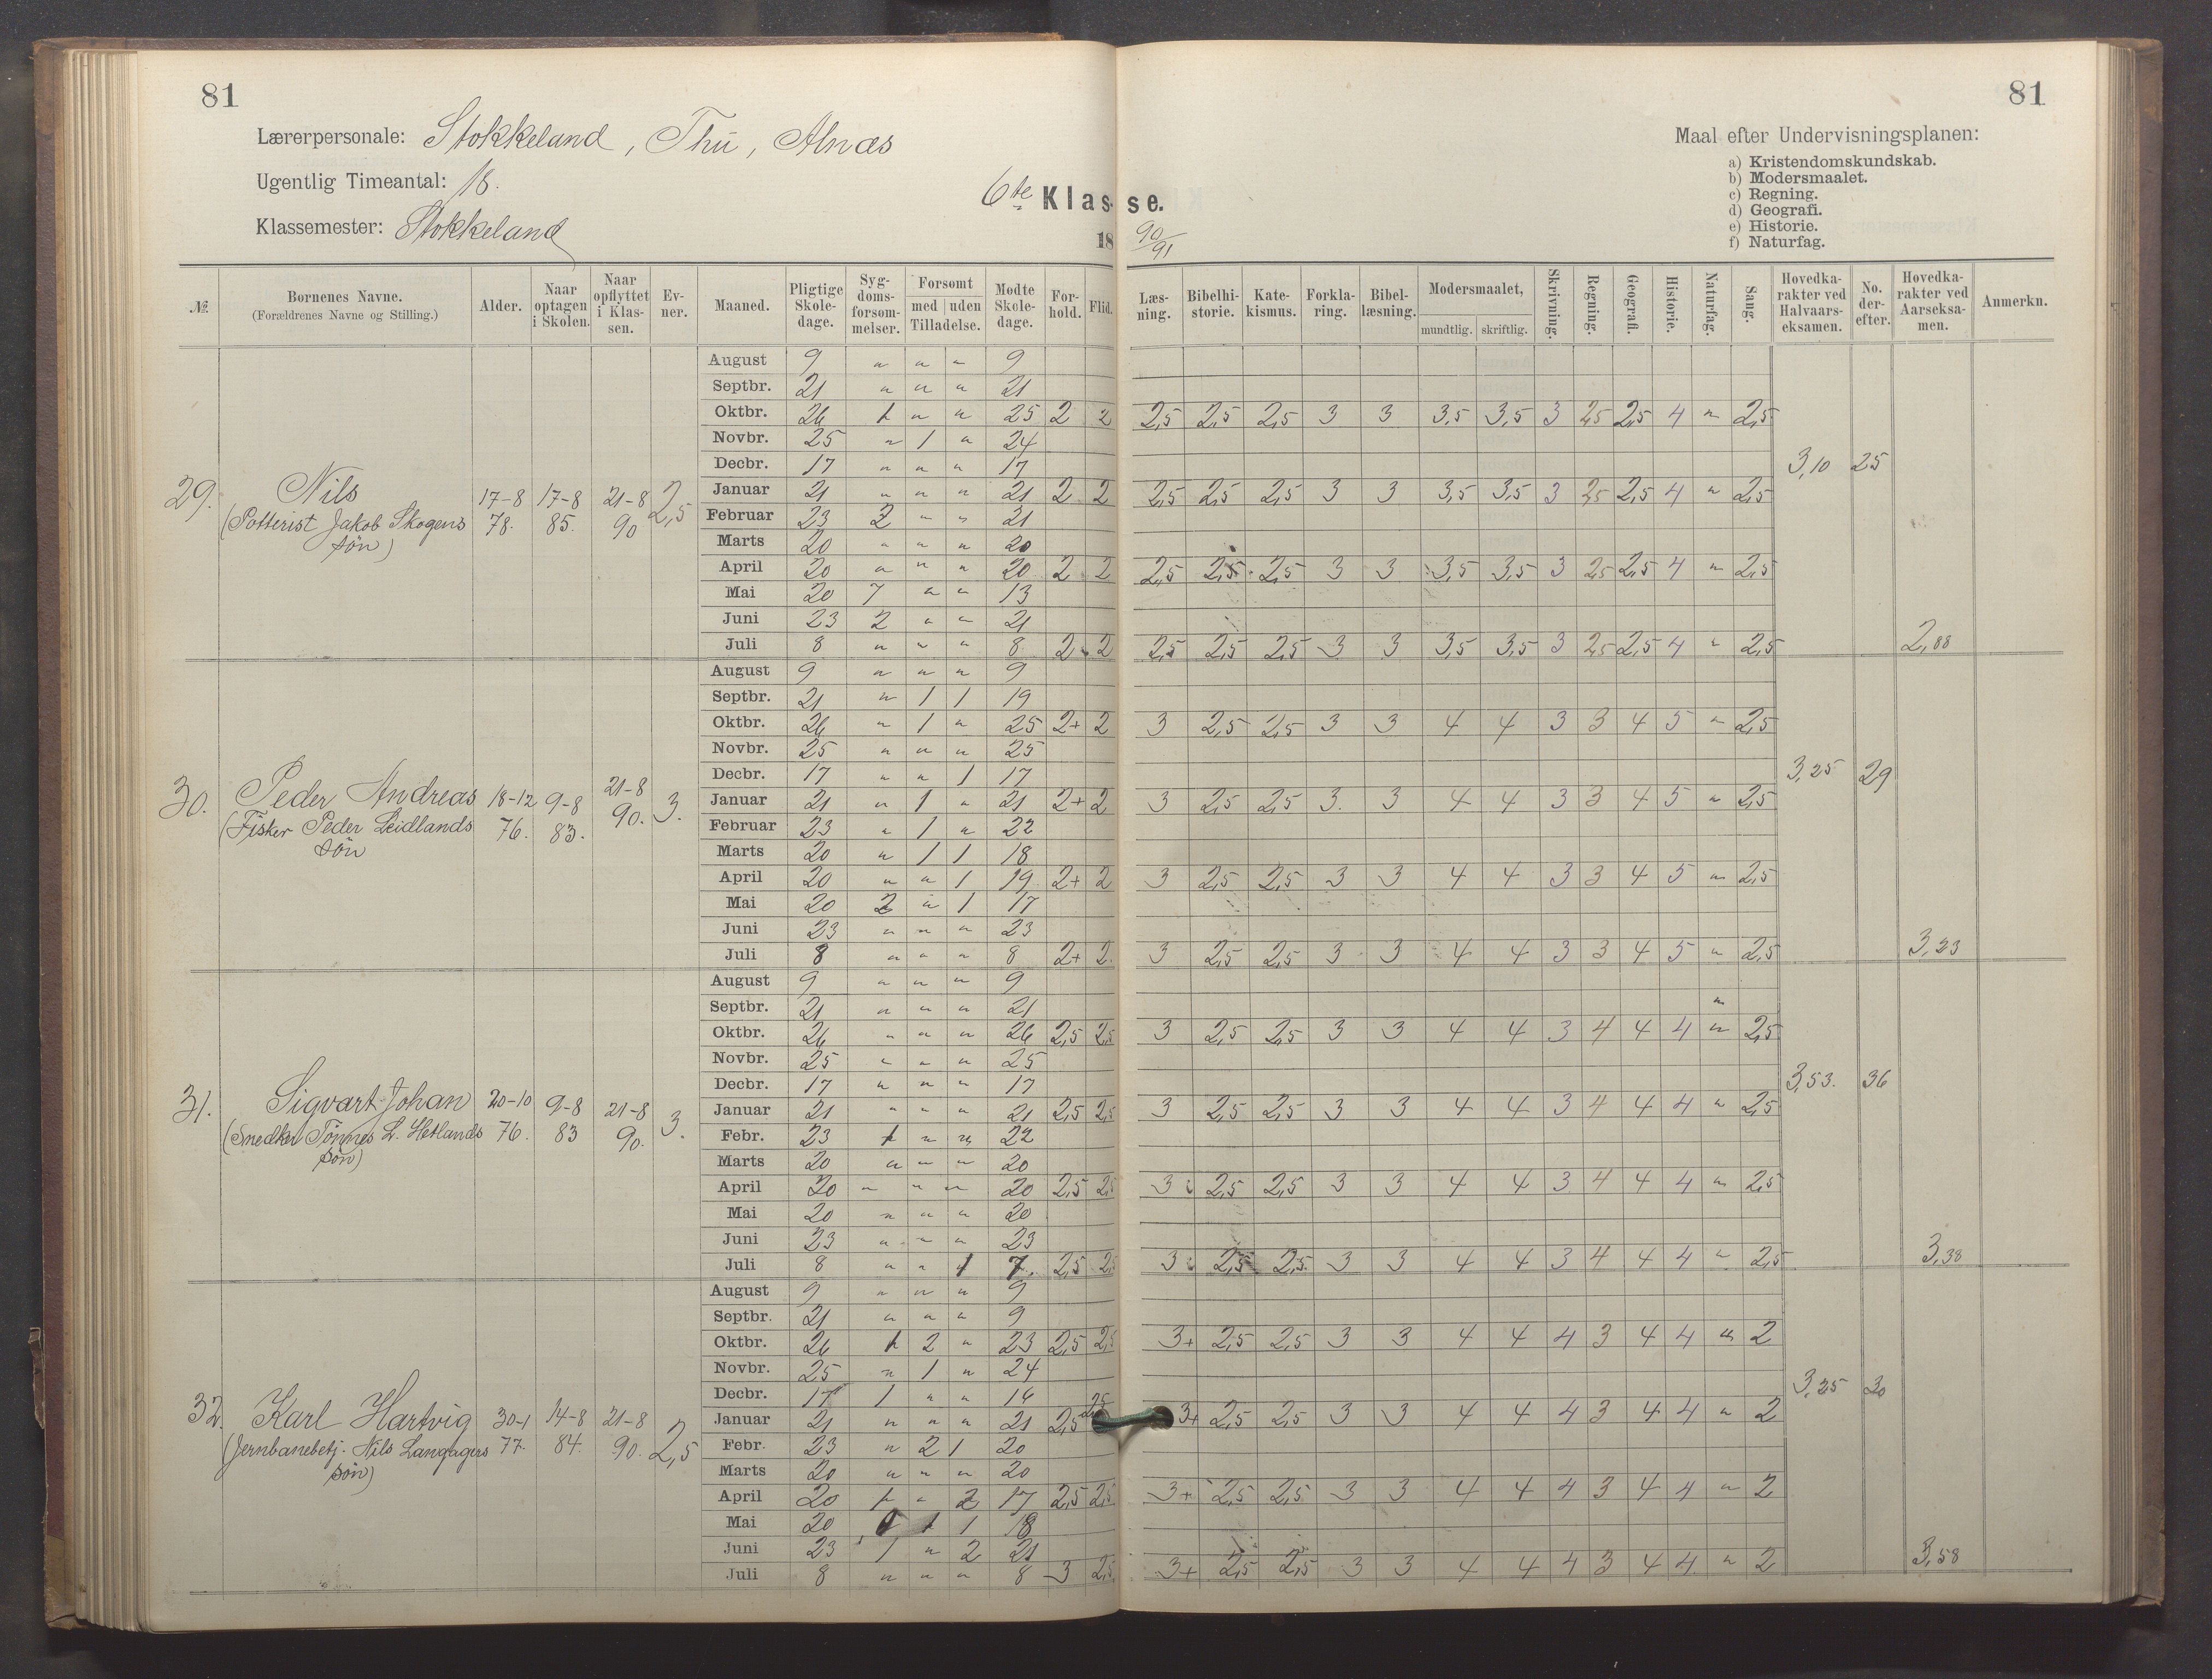 81
81
Lærerpersonale: Stokkeland, Thu, Alnæs
Ugentlig Timeantal: 18.
Klassemester: Stokkeland
6te Klasse.
18 90/91
Maal efter Undervisningsplanen:
a) Kristendomskundskab.
b) Modersmaalet.
c) Regning.
d) Geografi.
e) Historie.
f) Naturfag.
№ | Børnenes Navne. (Forældrenes Navne og Stilling.) | Alder. | Naar optagen i Skolen. | Naar opflyttet i Klassen. | Evner. | Maaned. | Pligtige Skoledage. | Sygdomsforsømmelser. | Forsømt med uden Tilladelse. | Mødte Skoledage. | Forhold. | Flid. | Læsning. | Bibelhistorie. | Katekismus. | Forklaring. | Bibellæsning. | Modersmaalet, mundtlig. skriftlig. | Skrivning. | Regning. | Geografi. | Historie. | Naturfag. | Sang. | Hovedkarakter ved Halvaarseksamen. | No. derefter. | Hovedkarakter ved Aarseksamen. | Anmerkn.
29. Nils (Potterist Jakob Skogens søn) 17-8 78. 17-8 85. 21-8 90 2,5
August 9 " " " 9
Septbr. 21 " " " 21
Oktbr. 26 1 " " 25 2 2 2,5 2,5 2,5 3 3 3,5 3,5 3 2,5 2,5 4 " 2,5
Novbr. 25 " 1 " 24
Decbr. 17 " " " 17 3,10 25
Januar 21 " " " 21 2 2 2,5 2,5 2,5 3 3 3,5 3,5 3 2,5 2,5 4 " 2,5
Februar 23 2 " " 21
Marts 20 " " " 20
April 20 " " " 20 2 2 2,5 2,5 2,5 3 3 3,5 3,5 3 2,5 2,5 4 " 2,5
Mai 20 7 " " 13
Juni 23 2 " " 21
Juli 8 " " " 8 2 2 2,5 2,5 2,5 3 3 3,5 3,5 3 2,5 2,5 4 " 2,5 2,88
30. Peder Andreas (Fisker Peder Leidlands søn 18-12 76. 9-8 83. 21-8 90. 3.
August 9 " " " 9
Septbr. 21 " 1 1 19
Oktbr. 26 " 1 " 25 2+ 2 3 2,5 2,5 3 3 4 4 3 3 4 5 " 2,5
Novbr. 25 " " " 25
Decbr. 17 " " 1 17 3,25 29
Januar 21 " 1 " 21 2+ 2 3 2,5 2,5 3. 3 4 4 3 3 4 5 " 2,5
Februar 23 " 1 " 22
Marts 20 " 1 1 18
April 20 " " 1 19 2+ 2 3 2,5 2,5 3 3 4 4 3 3 4 5 " 2,5
Mai 20 2 " 1 17
Juni 23 " " " 23
Juli 8 " " " 8 2+ 2. 3 2,5 2,5 3 3 4 4 3 3 4 5 " 2,5 3,23
31. Sigvart Johan (Snedker Tönnes L. Hetlands søn) 20-10 76. 9-8 83 21-8 90. 3.
August 9 " " " 9
Septbr. 21 " " " 21 "
Oktbr. 26 " " " 26 2,5 2,5 3 2,5 2,5 3 3 4 4 3 4 4 4 " 2,5
Novbr. 25 " " " 25
Decbr. 17 " " " 17 3,53. 36
Januar 21 " " " 21 2,5 2,5 3 2,5 2,5 3 3 4 4 3 4 4 4 " 2,5
Febr. 23 1 " " 22
Marts 20 " " " 20
April 20 " " " 20 2,5 2,5 3 2,5 2,5 3 3 4 4 3 4 4 4 " 2,5
Mai 20 " " " 20
Juni 23 " " " 23
Juli 8 " " 1 7. 2,5 2,5 3 2,5 2,5 3 3 4 4 3 4 4 4 " 2,5 3,38
32. Karl Hartvig (Jernbanebetj. Nils Langagers søn) 30-1 77. 14-8 84. 21-8 90. 2,5
August 9 " " " 9
Septbr. 21 " " " 9
Oktbr. 26 1 2 " 23 2,5 2,5 3+ 2,5 2,5 3 3 4 4 4 3 4 4 " 2
Novbr. 25 " 1 " 24
Decbr. 17 1 " " 16 3,25 30
Januar 21 " " " 21 2,5 2,5 3+ 2,5 2,5 3 3 4 4 4 3 4 4 " 2
Febr. 23 " 2 1 20
Marts 20 " " " 20
April 20 1 " 2 17 2,5 2,5 3+ 2,5 2,5 3 3 4 4 4 3 4 4 " 2
Mai 20 1 1 18
Juni 23 1 " 2 21
Juli 8 " " " 8 3 2,5 3+ 2,5 2,5 3 3 4 4 4 3 4 4 " 2 3,58